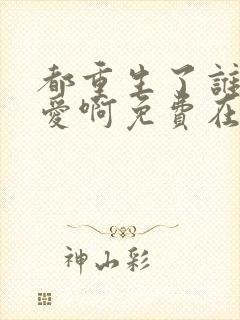 都重生了誰
愛啊免費在
神山彩